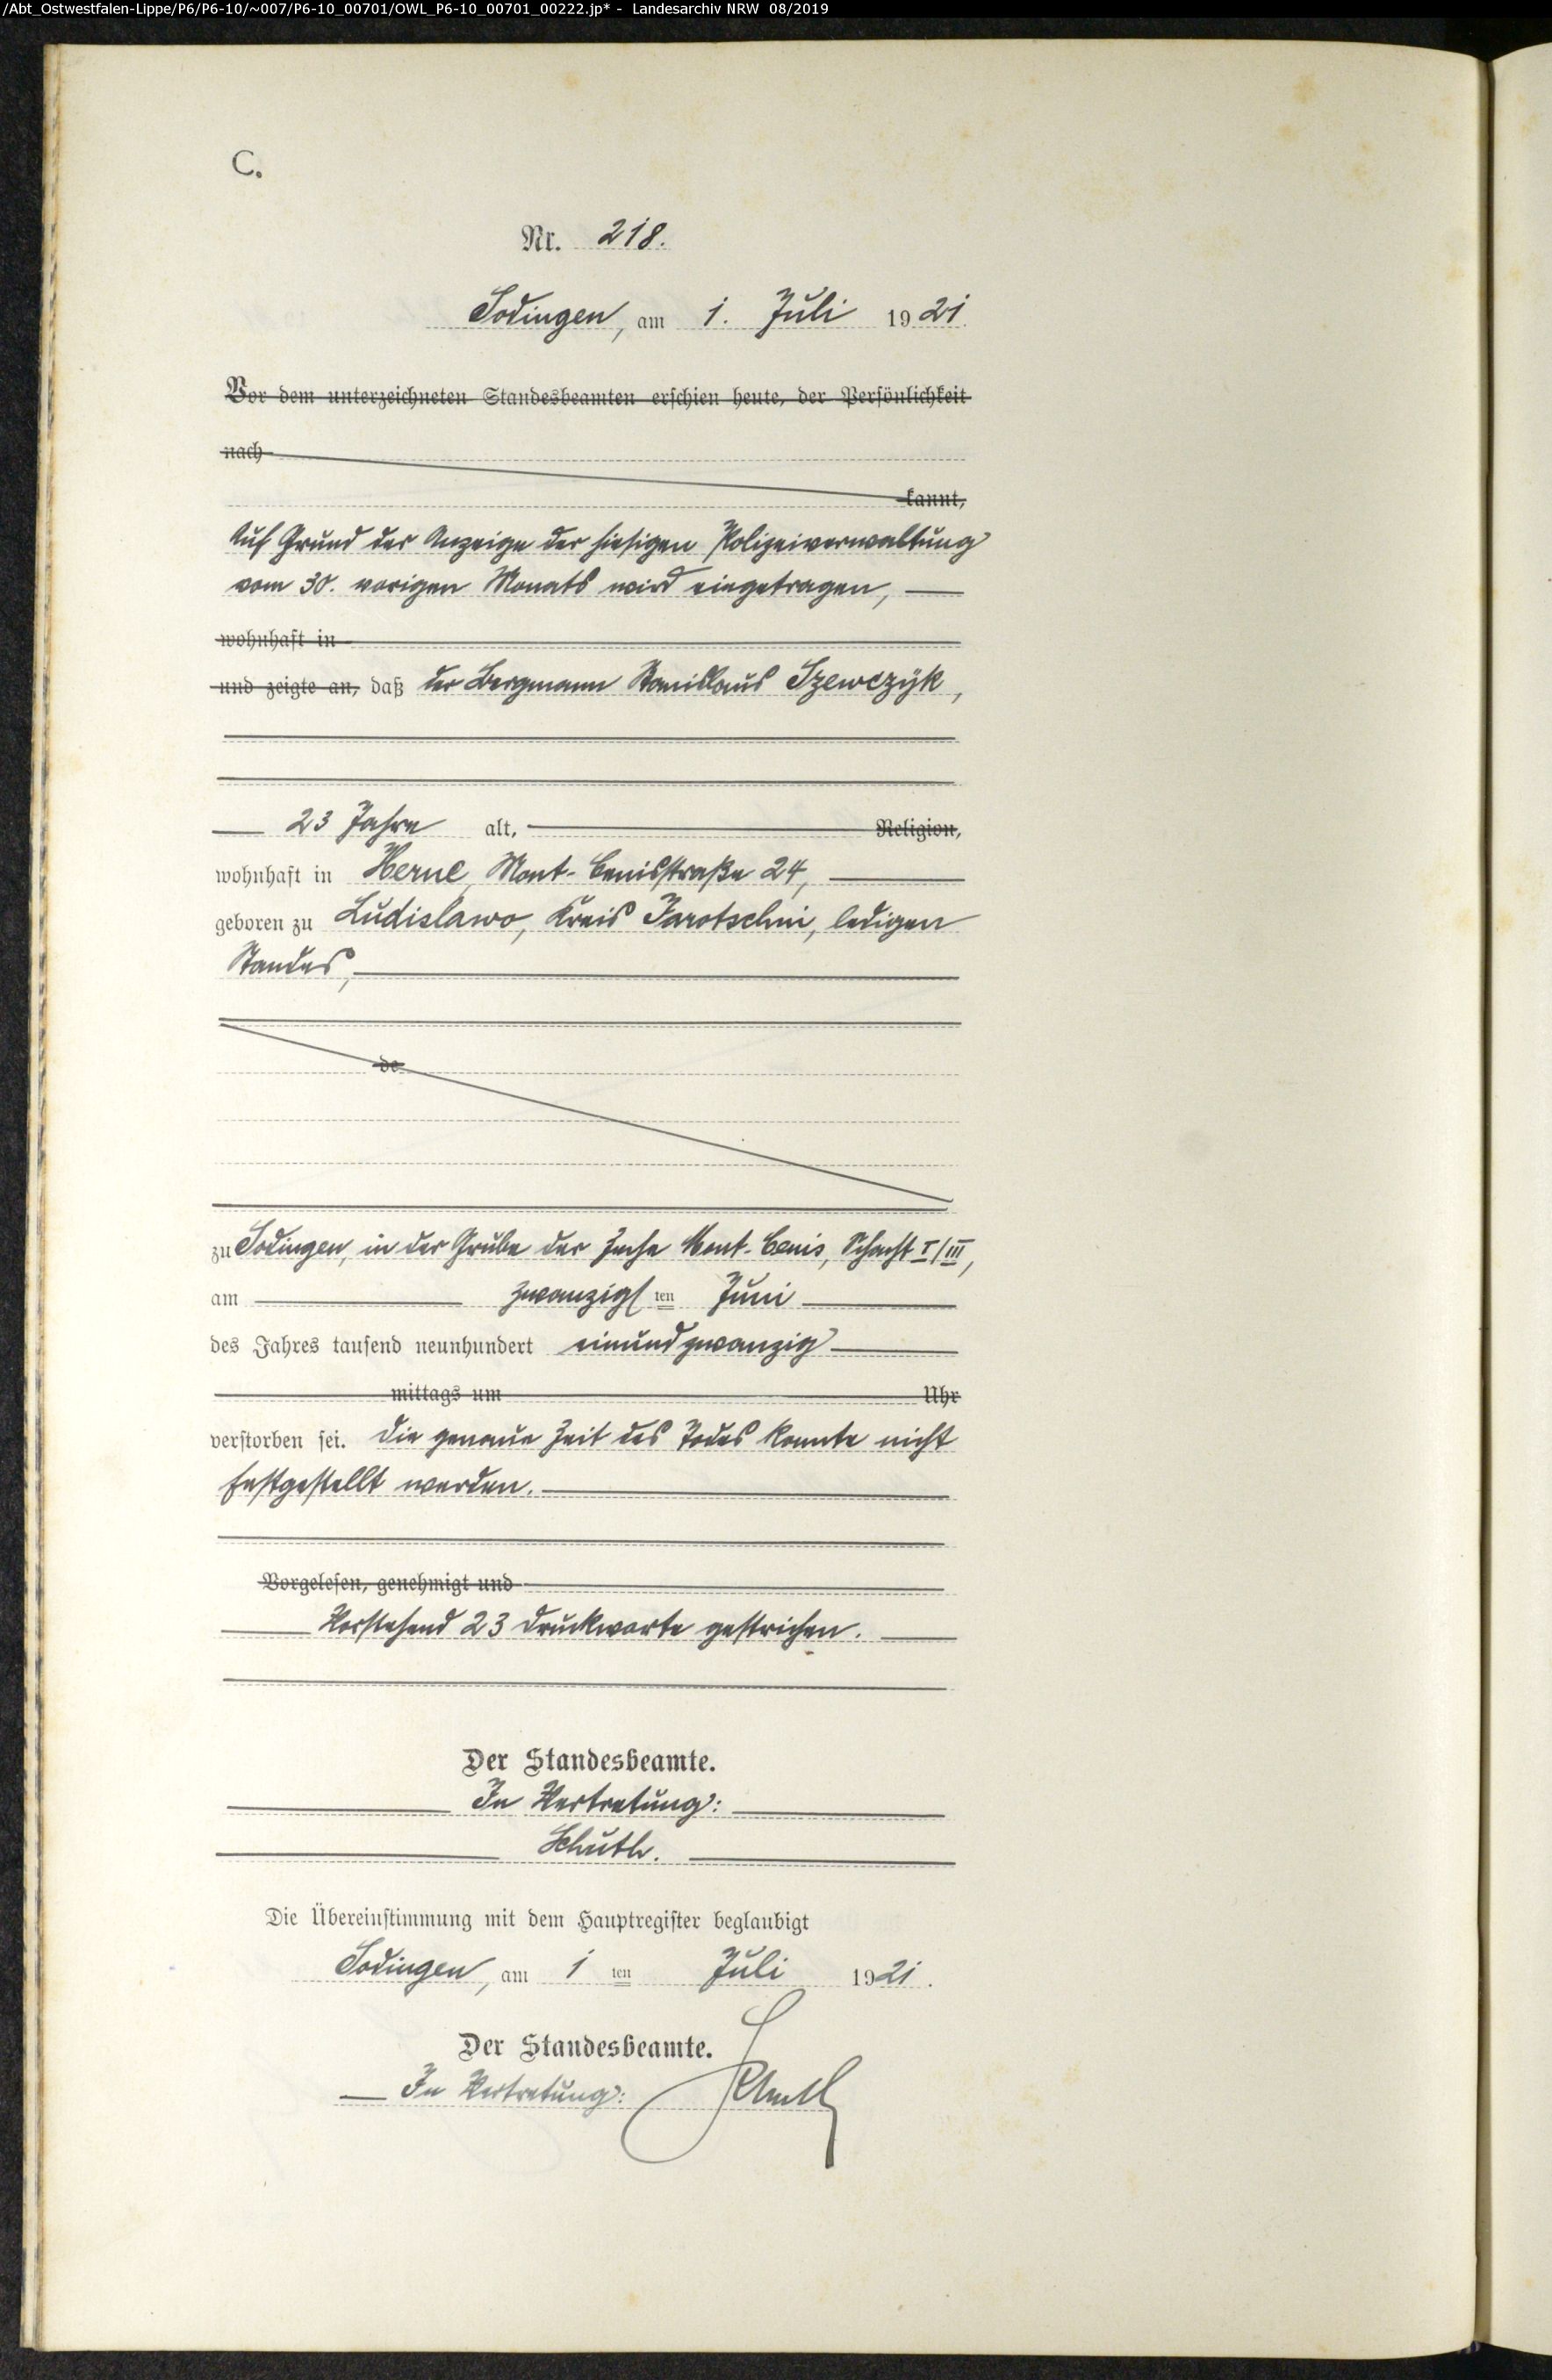 /Abt_Ostwestfalen-Lippe/P6/P6-10/~007/P6-10_00701/OWL_P6-10_00701_00222.jp* - Landesarchiv NRW 08/2019
C.
Nr. 218.
Sodingen, am 1. Juli 1921.
Vor dem unterzeichneten Standesbeamten erschien heute, der Persönlichkeit
nach
kannt,
Auf Grund der Anzeige der hiesigen Polizeiverwaltung
vom 30. vorigen Monats wird eingetragen,
wohnhaft in
und zeigte an, daß der Bergmann Stanislaus Szewczyk,
23 Jahre alt, Religion,
wohnhaft in Herne, Mont-Cenisstraße 24,
geboren zu Ludislawo, Kreis Jarotschin, ledigen
Standes,
de
zu Sodingen, in der Grube der Zeche Mont-Cenis, Schacht I/III,
am zwanzigsten Juni
des Jahres tausend neunhundert einundzwanzig
mittags um Uhr
verstorben sei. Die genaue Zeit des Todes konnte nicht
festgestellt werden.
Vorgelesen, genehmigt und
Vorstehend 23 Druckworte gestrichen.
Der Standesbeamte.
In Vertretung:
Schuth.
Die Übereinstimmung mit dem Hauptregister beglaubigt
Sodingen, am 1 ten Juli 1921.
Der Standesbeamte.
In Vertretung: Schuth